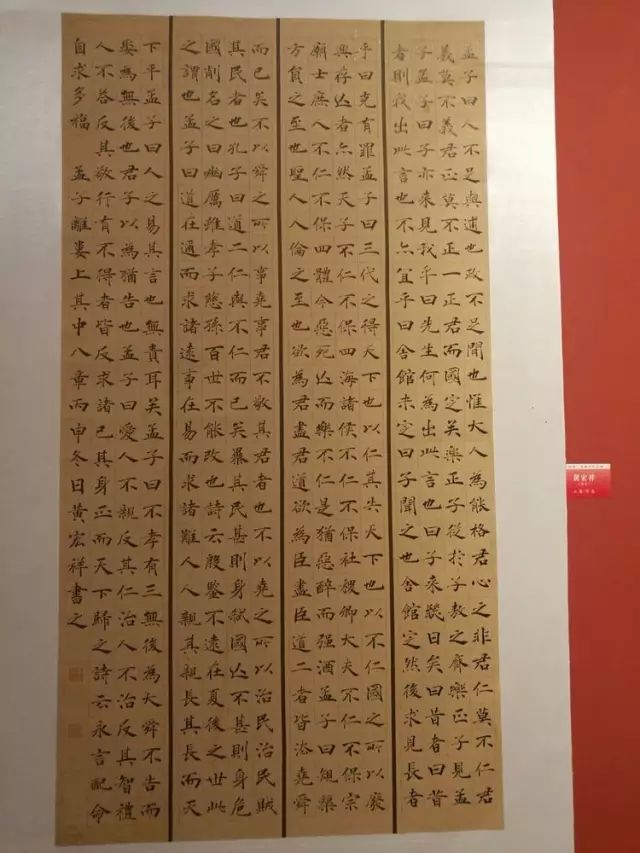 孟子曰人不足與適也政不足間也惟大人為能格君心之非君仁莫不仁君
義莫不義君正莫不正一正君而國定矣樂正子從於子敖之齊樂正子見孟
子孟子曰子亦來見我乎曰先生何為出此言也曰子來幾日矣曰昔者曰昔
者則我出此言也不亦宜乎曰舍館未定曰子聞之也舍館定然後求見長者
乎曰克有罪孟子曰三代之得天下也以仁其失天下也以不仁國之所以廢
興存亡者亦然天子不仁不保四海諸侯不仁不保社稷卿大夫不仁不保宗
廟士庶人不仁不保四體今惡死亡而樂不仁是猶惡醉而强酒孟子曰規榘
方員之至也聖人人倫之至也欲為君盡君道欲為臣盡臣道二者皆法堯舜
而已矣不以舜之所以事堯事君不敬其君者也不以堯之所以治民治民賊
其民者也孔子曰道二仁與不仁而已矣暴其民甚則身弑國亡不甚則身危
國削名之曰幽厲雖孝子慈孫百世不能改也詩云殷鑒不遠在夏後之世此
之謂也孟子曰道在邇而求諸遠事在易而求諸難人人親其親長其長而天
下平孟子曰人之易其言也無責耳矣孟子曰不孝有三無後為大舜不告而
娶為無後也君子以為猶告也孟子曰愛人不親反其仁治人不治反其智禮
人不答反其敬行有不得者皆反求諸己其身正而天下歸之詩云永言配命
自求多福 孟子離婁上其中八章丙申冬日黄宏祥書之
黄宏祥